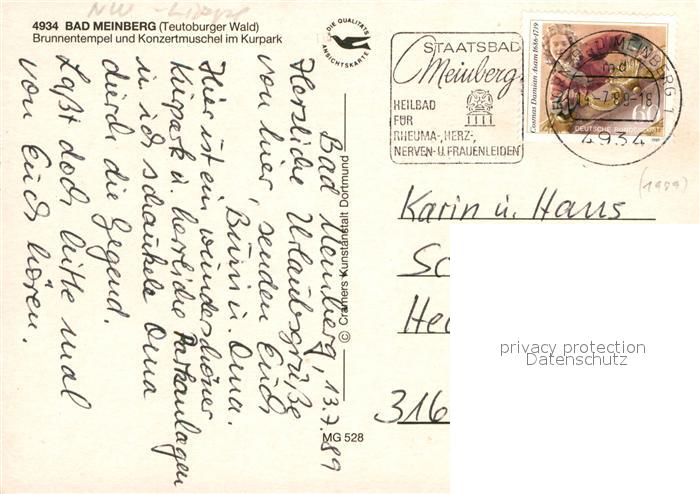 NW - Lippe
4934 BAD MEINBERG (Teutoburger Wald)
Brunnentempel und Konzertmuschel im Kurpark
DIE QUALITÄTS
ANSICHTSKARTE
STAATSBAD
Meinberg
HEILBAD
FÜR
RHEUMA-, HERZ-,
NERVEN- U. FRAUENLEIDEN
Cosmas Damian Asam 1686-1739
60
DEUTSCHE BUNDESPOST
HORN-BAD MEINBERG 1
md
14.-7.89-18
4934
(1989)
Bad Meinberg, 13.7.89
Herzliche Urlaubsgrüße
von hier, senden Euch
Buzi u. Oma.
Hier ist ein wunderschöner
Kurpark u. herrliche Parkanlagen
in ich schaukele Oma
durch die Gegend.
Laßt doch bitte mal
von Euch hören.
© Cramers Kunstanstalt Dortmund
MG 528
Karin u. Hans
Sc
He
316
privacy protection
Datenschutz